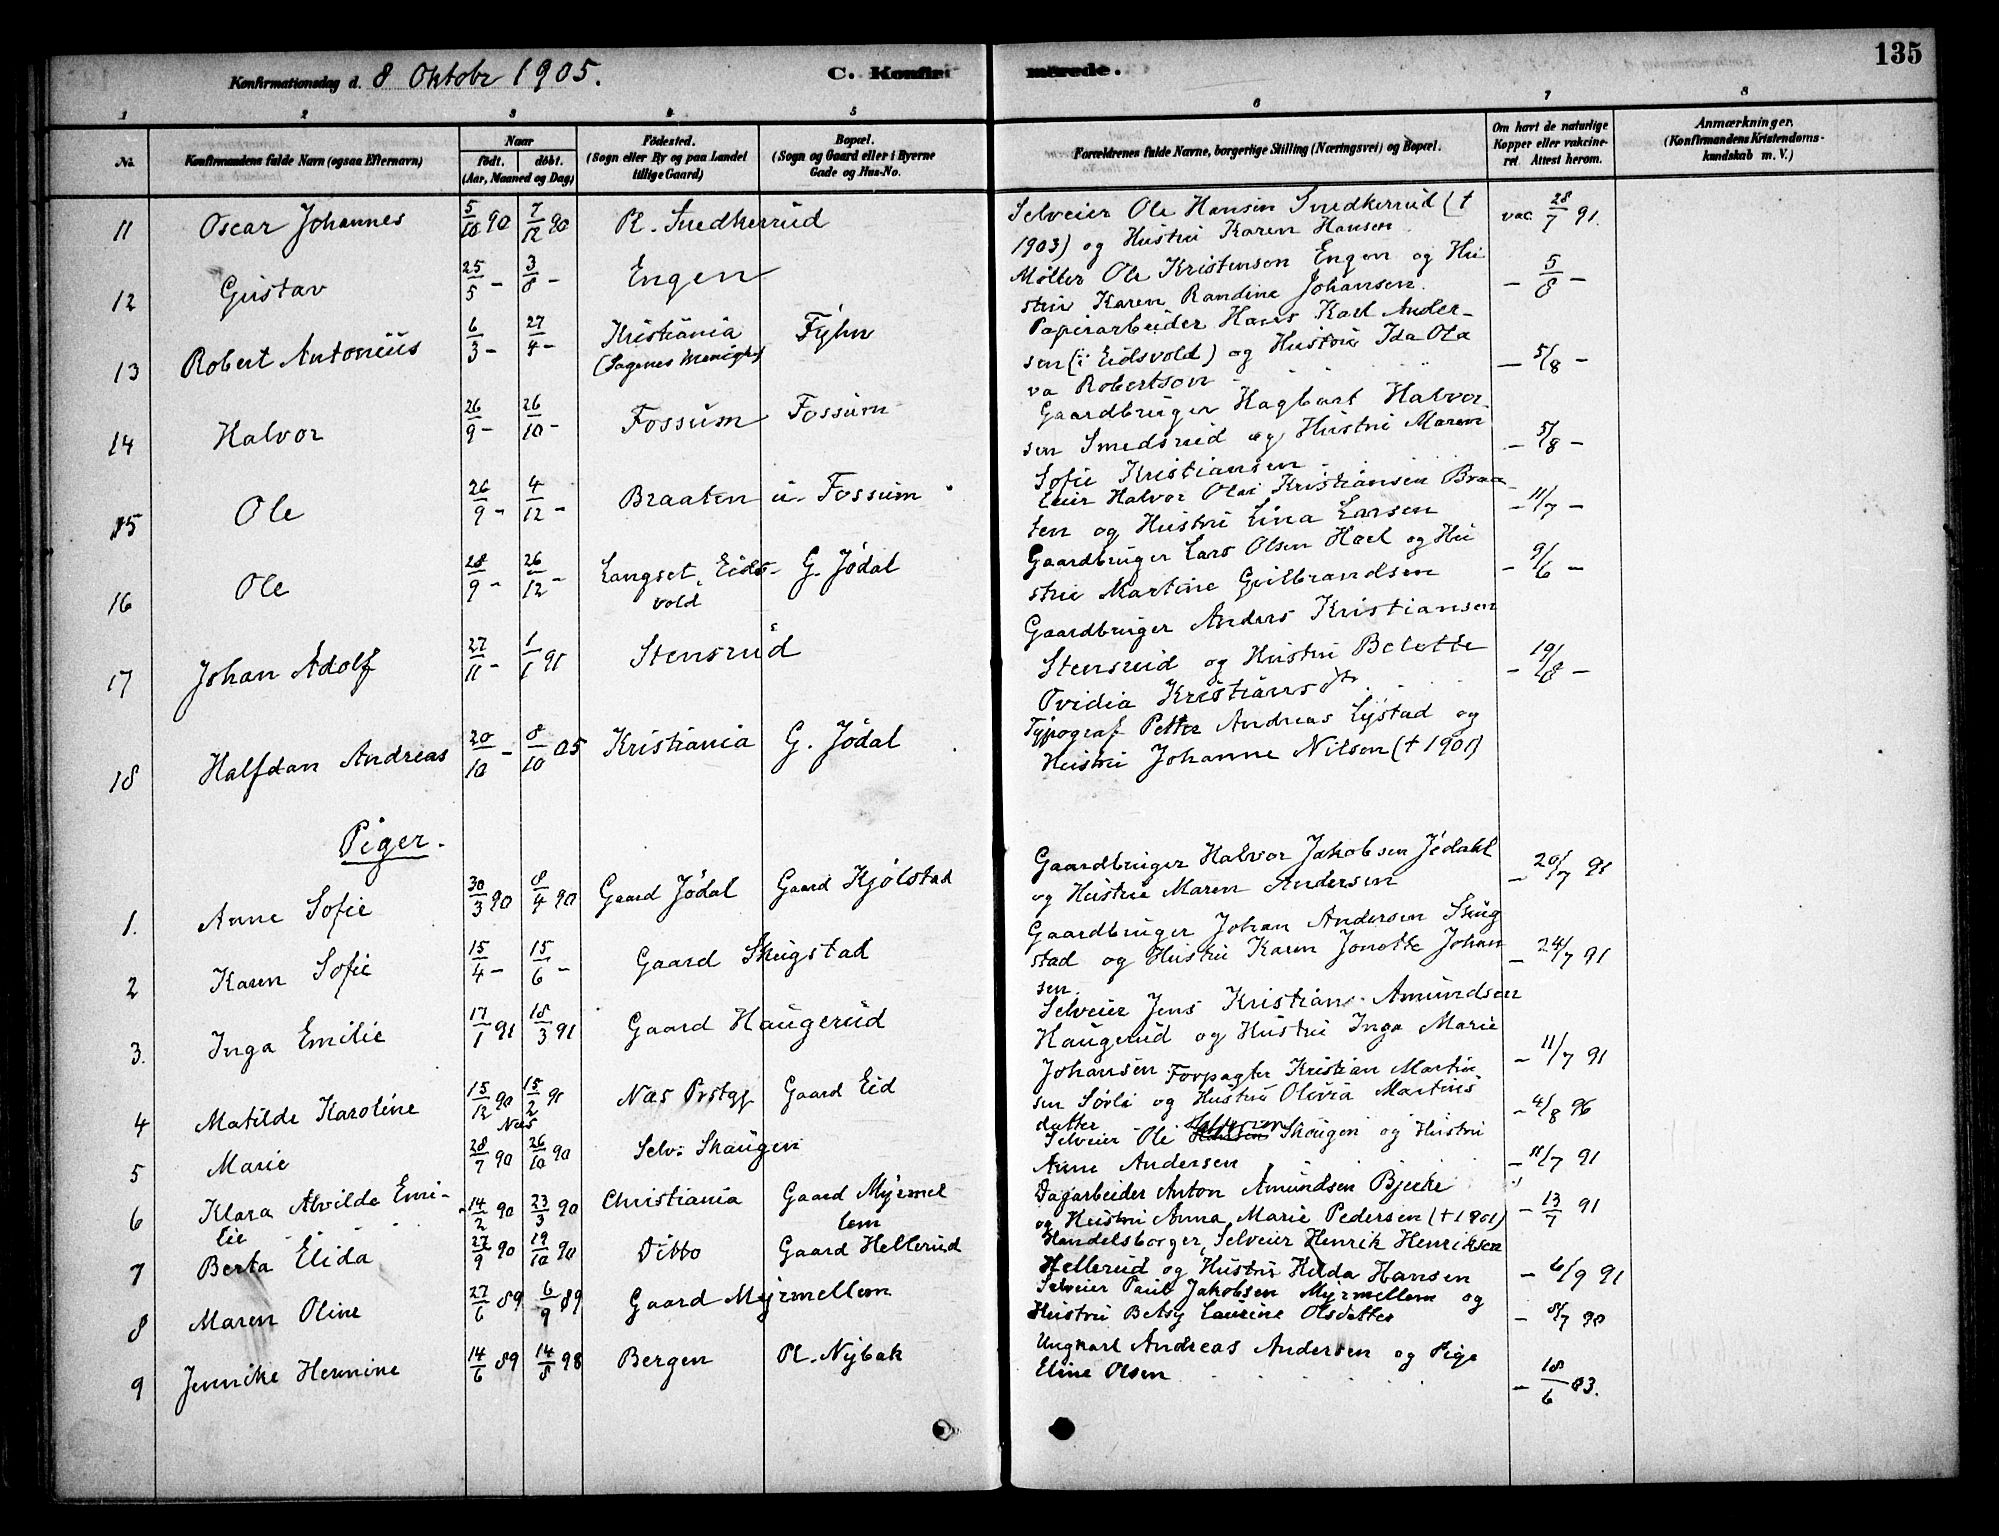 135
Konfirmationsdag d. 8 Oktobr 1905. C. Konfirmerede.
1 2 3 4 5 6 7 8
No. Konfirmandens fulde Navn (ogsaa Efternavn) Naar født. døbt. (Aar, Maaned og Dag) Födested. (Sogn eller By og paa Landet tillige Gaard) Bopæl. (Sogn og Gaard eller i Byerne Gade og Hus-No. Forældrenes fulde Navne, borgerlige Stilling (Næringsvei) og Bopæl. Om havt de naturlige Kopper eller vakcineret. Attest herom. Anmærkninger. (Konfirmandens Kristendomskundskab m. V.)
11 Oscar Johannes 5/10 90 7/12 90 Pl. Snedkerrud Selveier Ole Hansen Snedkerrud († vac 28/7 91.
1903) og Hustru Karen Hansen
12 Gustav 25/5 - 3/8 - Engen Møller Ole Kristensen Engen og Hu - 5/8 -
stru Karen Randine Johansen.
13 Robert Antonius 6/3 - 27/4 - Kristiania Fyhn Papirarbeider Hans Karl Ander-
(Sagenes Menighd sen (i Eidsvold) og Hustru Ida Ola - 5/8 -
va Robertson
14 Halvor 26/9 - 26/10 - Fossum Fossum Gaardbruger Hagbart Halvor
sen Smedsrud og Hustru Maren - 5/8 -
Sofie Kristiansen
15 Ole 26/9 - 4/12 - Braaten u. Fossum Leier Halvor Olai Kristiansen Braa - 11/7 -
ten og Hustru Lina Larsen
16 Ole 28/9 - 26/12 - Langset, Eids- G. Jødal Gaardbruger Lars Olsen Hoel og Hu - 9/6 -
vold stru Martine Gulbrandsen
17 Johan Adolf 27/11 - 1/1 91 Stensrud Gaardbruger Anders Kristiansen
Stensrud og Hustru Belette - 19/8 -
Ovidia Kristiansdtr.
18 Halfdan Andreas 20/10 - 8/10 05 Kristiania G. Jødal Typograf Petter Andreas Lystad og
Hustru Johanne Nilsen († 1901)
Piger.
1. Anne Sofie 30/3 90 8/4 90 Gaard Jødal Gaard Kjølstad Gaardbruger Halvor Jakobsen Jødahl - 20/7 91
og Hustru Maren Andersen
2 Karen Sofie 15/4 - 15/6 - Gaard Skugstad Gaardbruger Johan Andersen Skug
stad og Hustru Karen Jonette Johan - 24/7 91
sen.
3. Inga Emilie 17/1 91 18/3 91 Gaard Haugerud Selveier Jens Kristian Amundsen
Haugerud og Hustru Inga Marie
Johansen - 11/7 91
4 Matilde Karoline 15/12 90 15/2 91 Næs Prstgj Gaard Eid Forpagter Kristian Martin
Næs sen Sørli og Hustru Olivia Martins - 4/8 96
datter
5 Marie 28/7 90 26/10 90 Selv: Skaugen Selveier Ole Skaugen og Hustru
Anne Andersen - 11/7 91
6 Klara Alvilde Emi- 14/2 90 23/3 90 Christiania Gaard Myrmel Dagarbeider Anton Amundsen Bjerke
lie lem og Hustru Anna Marie Pedersen († 1901) - 13/7 91
7 Berta Elida 27/9 90 19/10 90 Ditto Gaard Hellerud Handelsborger, Selveier Henrik Henriksen
Hellerud og Hustru Hilda Hansen - 6/9 91
8 Maren Oline 27/6 89 6/9 89 Gaard Myrmellem Selveier Paul Jakobsen Myrmellem og
Hustru Betsy Laurine Olsdatter - 8/7 90
9 Jennike Hermine 14/6 89 14/8 98 Bergen Pl. Nybak Ungkarl Andreas Andersen og Pige
Eline Olsen - 18/6 03.